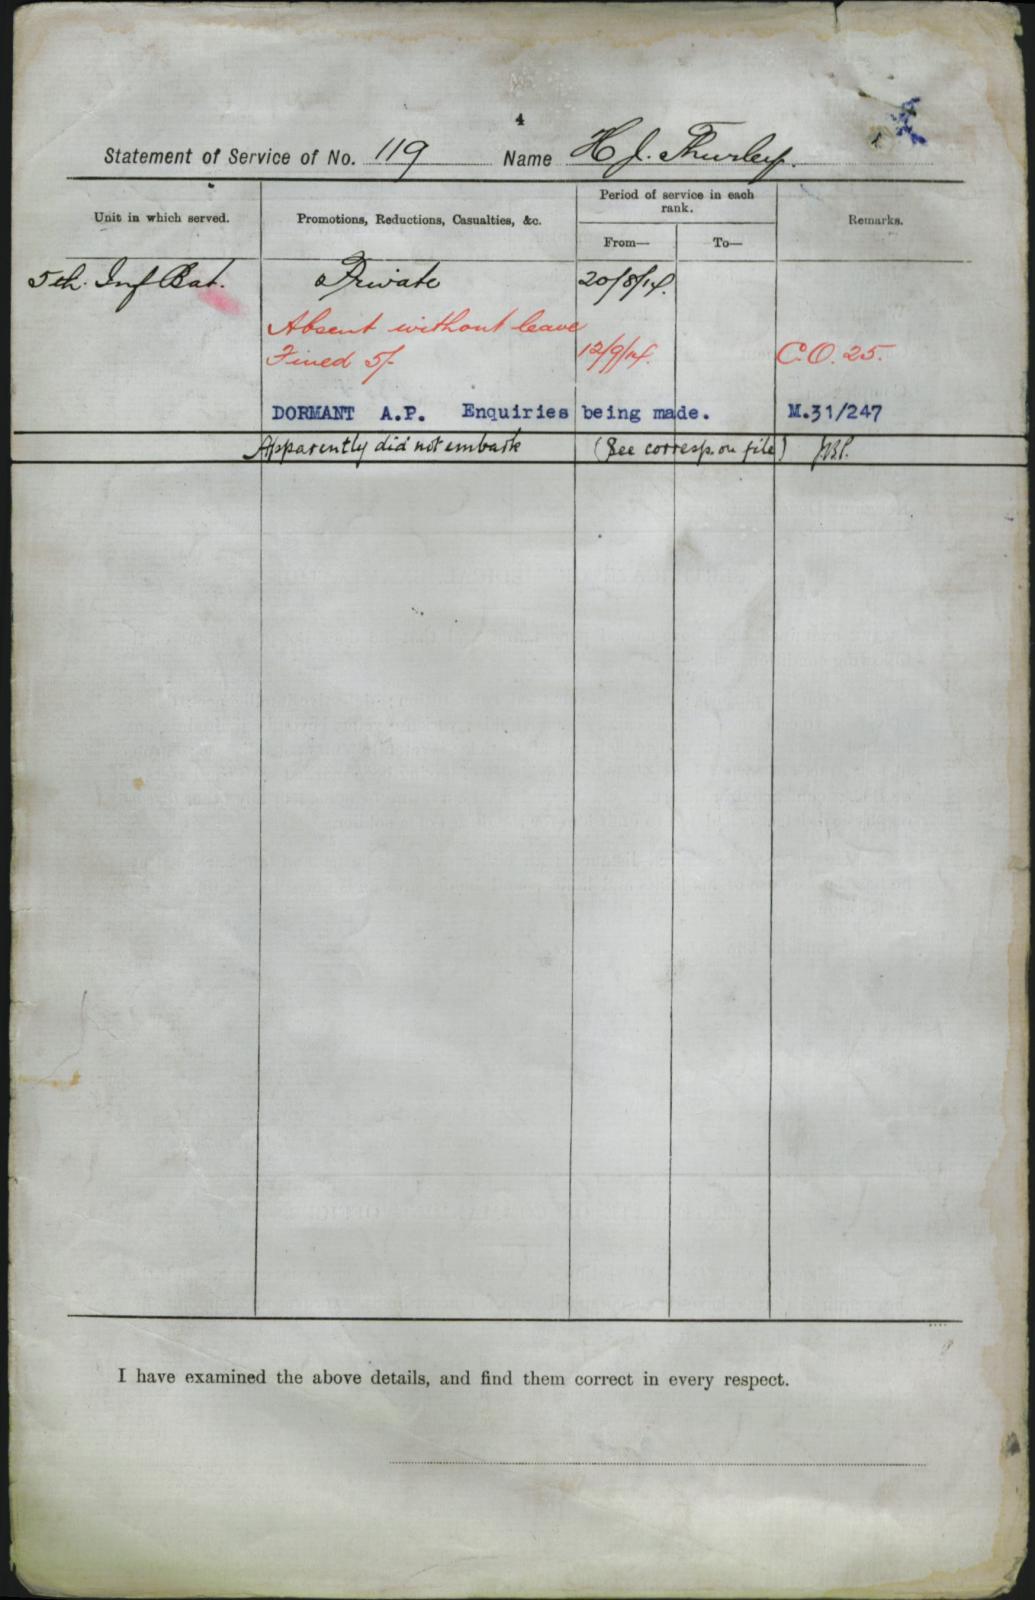 4
Statement of Service of No. 119 Name H J. Thurley.
Unit in which served. Promotions, Reductions, Casualties, &c. Period of service in each rank. From— To— Remarks.
5th. Inf Bat. Private 20/8/14.
Absent without leave
Fined 5/- 12/9/14. C.O. 25.
DORMANT A.P. Enquiries being made. M.31/247
Apparently did not embark (See corresp. on file)
I have examined the above details, and find them correct in every respect.